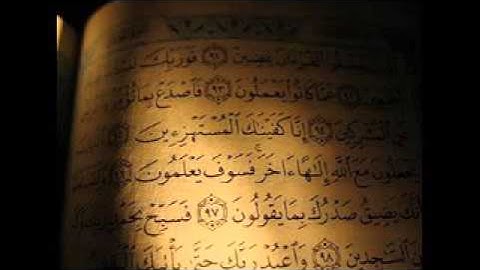 ٱلْقُرْءَانَ عِضِينَ ٩١ فَوَرَبِّكَ
عَمَّا كَانُوا۟ يَعْمَلُونَ ٩٣ فَٱصْدَعْ بِمَا تُؤْمَرُ
ٱلْمُشْرِكِينَ ٩٤ إِنَّا كَفَيْنَـٰكَ ٱلْمُسْتَهْزِءِينَ
يَجْعَلُونَ مَعَ ٱللَّهِ إِلَـٰهًا ءَاخَرَ ۚ فَسَوْفَ يَعْلَمُونَ
يَضِيقُ صَدْرُكَ بِمَا يَقُولُونَ ٩٧ فَسَبِّحْ بِحَمْدِ رَبِّكَ
ٱلسَّـٰجِدِينَ ٩٨ وَٱعْبُدْ رَبَّكَ حَتَّىٰ يَأْتِيَكَ